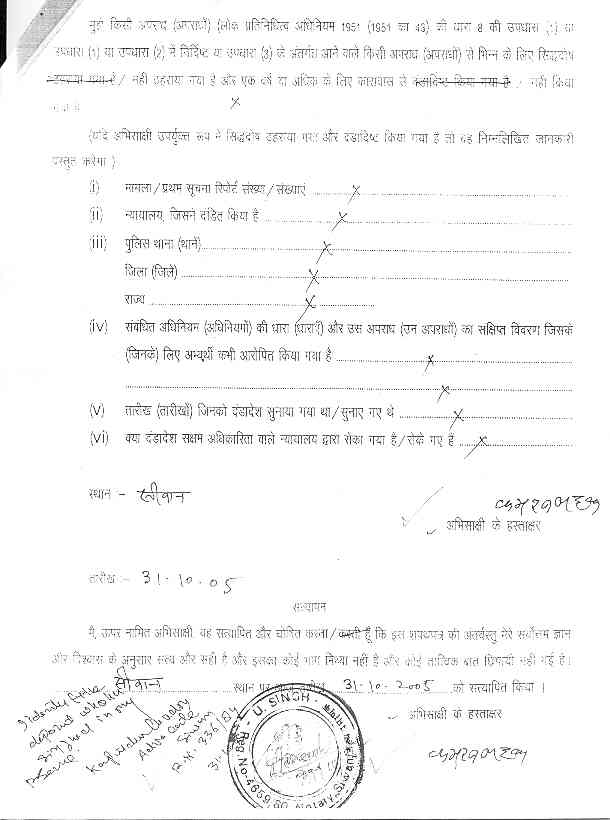 मुझे किसी अपराध (अपराधों) (लोक प्रतिनिधित्व अधिनियम 1951 (1951 का 43) की धारा 8 की उपधारा (1) या
उपधारा (1) या उपधारा (2) में निर्दिष्ट या उपधारा (3) के अंतर्गत आने वाले किसी अपराध (अपराधों) से भिन्न के लिए सिद्धदोष
ठहराया गया है / नहीं ठहराया गया है और एक वर्ष या अधिक के लिए कारावास से दंडादिष्ट किया गया है / नहीं किया
गया है
(यदि अभिसाक्षी उपर्युक्त रूप में सिद्धदोष ठहराया गया और दंडादिष्ट किया गया है तो वह निम्नलिखित जानकारी
प्रस्तुत करेगा)
(i) मामला / प्रथम सूचना रिपोर्ट संख्या / संख्याएं x
(ii) न्यायालय, जिसने दंडित किया है x
(iii) पुलिस थाना (थानें) x
जिला (जिलें) x
राज्य x
(iv) संबंधित अधिनियम (अधिनियमों) की धारा (धाराएं) और उस अपराध (उन अपराधों) का संक्षिप्त विवरण जिसके
(जिनके) लिए अभ्यर्थी कभी आरोपित किया गया है x
x
(v) तारीख (तारीखों) जिनको दंडादेश सुनाया गया था / सुनाए गए थे x
(vi) क्या दंडादेश सक्षम अधिकारिता वाले न्यायालय द्वारा रोका गया है / रोके गए हैं x
स्थान :- सीवान
अभिसाक्षी के हस्ताक्षर
तारीख :- 31-10-05
सत्यापन
मैं, ऊपर नामित अभिसाक्षी, यह सत्यापित और घोषित करता / करती हूँ कि इस शपथपत्र की अंतर्वस्तु मेरे सर्वोत्तम ज्ञान
और विश्वास के अनुसार सत्य और सही है और इसका कोई भाग मिथ्या नहीं है और कोई तात्विक बात छिपायी नहीं गई है।
सीवान स्थान पर 31-10-2005 को सत्यापित किया।
अभिसाक्षी के हस्ताक्षर
deponent who has
signed in my
Siwan
336/04
U. SINGH
Reg. No-4659/80 Notary, Siwan